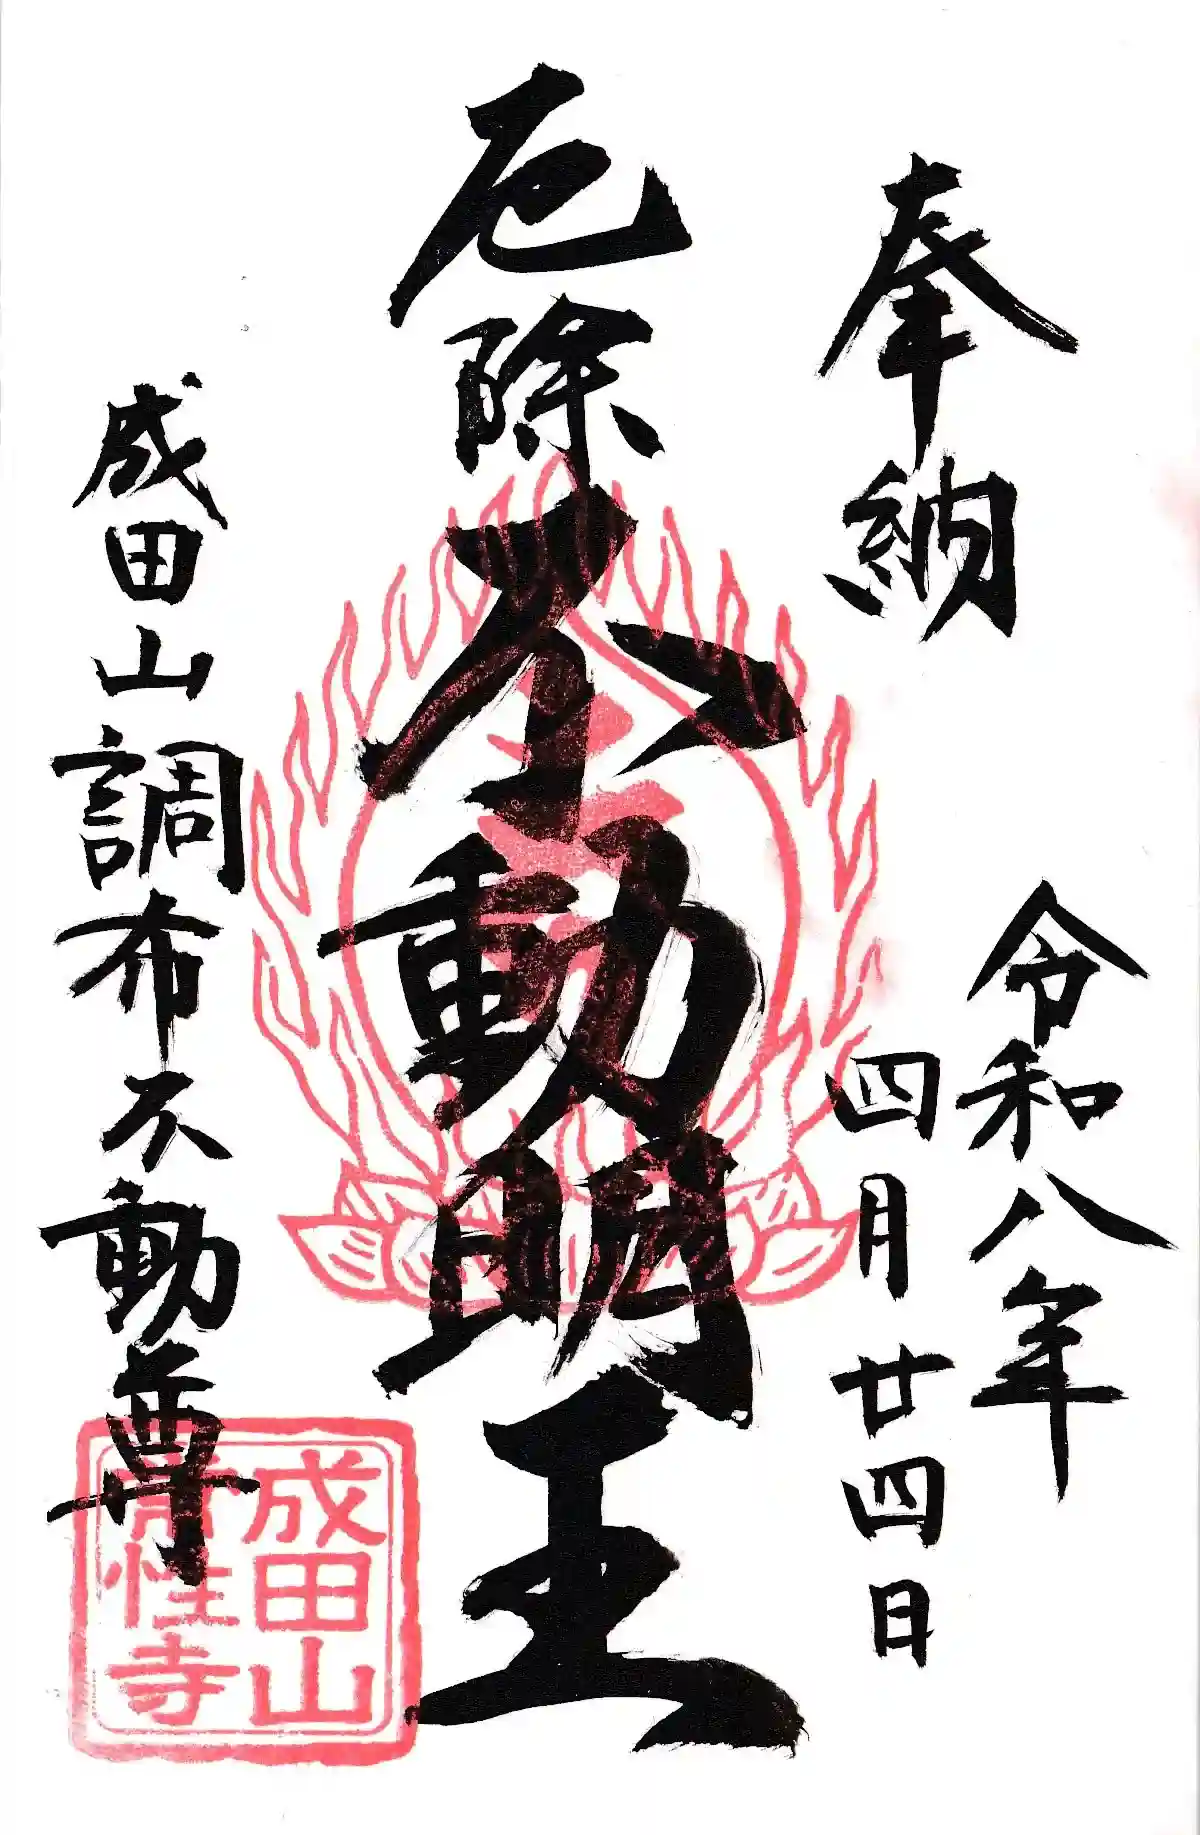 奉納
令和八年
四月廿四日
厄除不動明王
成田山調布不動尊
成田山
常性寺